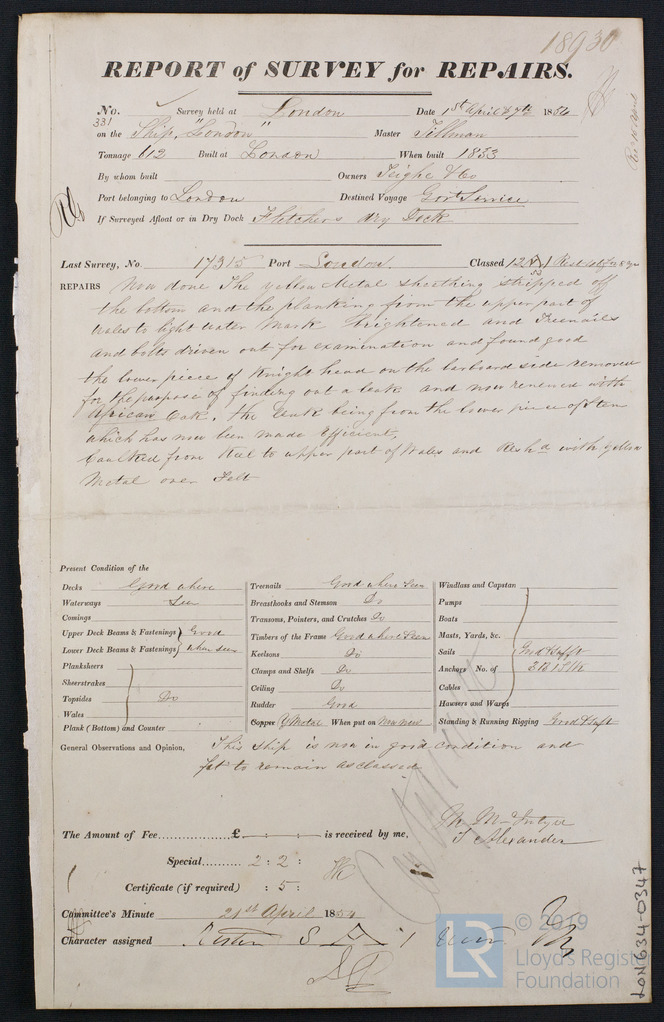 18930
REPORT of SURVEY for REPAIRS.
No. 331 Survey held at London Date 1st April & 7th 1854
on the Ship, "London" Master Tillman
Tonnage 612 Built at London When built 1833
By whom built Owners Teighe & Co
Port belonging to London Destined Voyage Govt Service
If Surveyed Afloat or in Dry Dock Fletchers dry Dock
Last Survey, No. 17315 Port London. Classed 12 A1
REPAIRS Now done The yellow Metal sheathing stripped off
the bottom and the planking from the upper part of
Wales to light water Mark brightened and Treenails
and bolts driven out for examination and found good
the lower piece of Knight head on the larboard side removed
for the purpose of finding out a leak and now renewed with
African Oak, the leak being from the lower piece of Stem
which has now been made Efficient,
Caulked from Keel to upper part of Wales and Reshd with yellow
Metal over Felt
Present Condition of the
Decks Good where
Waterways Seen
Comings
Upper Deck Beams & Fastenings Good
Lower Deck Beams & Fastenings when seen
Planksheers
Sheerstrakes
Topsides Do
Wales
Plank (Bottom) and Counter
Treenails Good where Seen
Breasthooks and Stemson Do
Transoms, Pointers, and Crutches Do
Timbers of the Frame Good where Seen
Keelsons Do
Clamps and Shelfs Do
Ceiling Do
Rudder Good
Copper Y Metal When put on Now New
Windlass and Capstan
Pumps
Boats
Masts, Yards, &c.
Sails Good & Suffit
Anchors No. of 3 B 1 S 1 K
Cables
Hawsers and Warps
Standing & Running Rigging Good & Suft
General Observations and Opinion, This Ship is now in good condition and
fit to remain as classed
The Amount of Fee £ is received by me,
Special 2 : 2 :
Certificate (if required) : 5 :
T Alexander
Committee's Minute 21st April 1854
Character assigned A 1
LON 634-0347
© 2019
LR
Lloyd's Register
Foundation